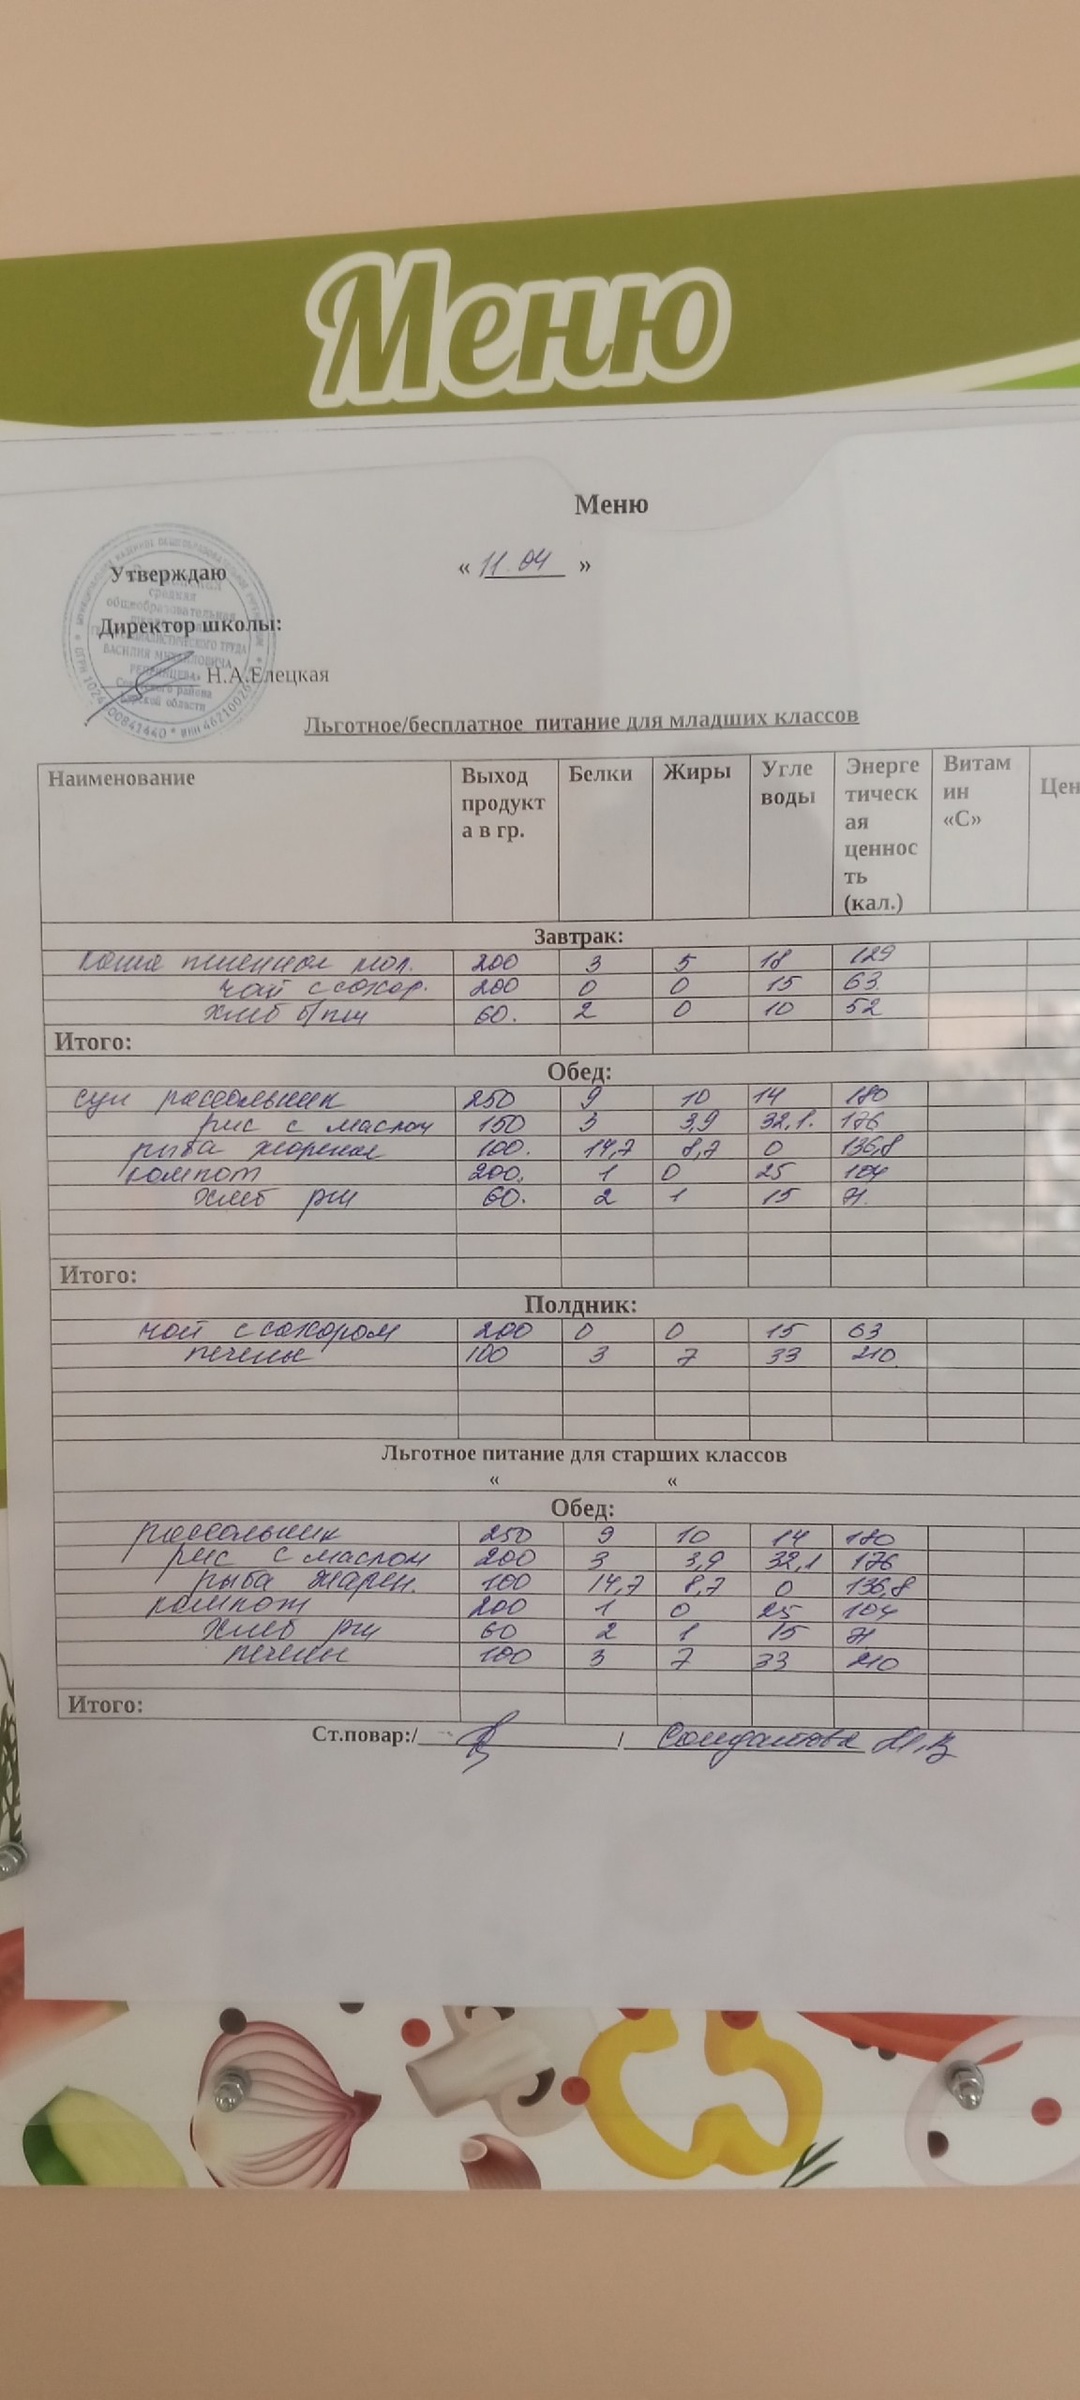 Меню
Меню
« 11.04 »
Утверждаю
средняя
общеобразовательная
Директор школы:
ВАСИЛИЯ МИХАЙЛОВИЧА
Н.А.Елецкая
района
области
Льготное/бесплатное питание для младших классов
Наименование Выход продукт а в гр. Белки Жиры Угле воды Энерге тическ ая ценнос ть (кал.) Витам ин «С» Цен
Завтрак:
каша пшенная мол. 200 3 5 18 129
чай с сахар. 200 0 0 15 63
хлеб б/пш 60. 2 0 10 52
Итого:
Обед:
суп рассольник 250 9 10 14 180
рис с маслом 150 3 3,9 32,1. 176
рыба жареная 100. 14,7 8,7 0 136,8
компот 200. 1 0 25 104
хлеб рш 60. 2 1 15 71.
Итого:
Полдник:
чай с сахаром 200 0 0 15 63
печенье 100 3 7 33 210
Льготное питание для старших классов
« «
Обед:
рассольник 250 9 10 14 180
рис с маслом 200 3 3,9 32,1 176
рыба жарен. 100 14,7 8,7 0 136,8
компот 200 1 0 25 104
хлеб рш 60 2 1 15 71
печенье 100 3 7 33 210
Итого:
Ст.повар:/ /